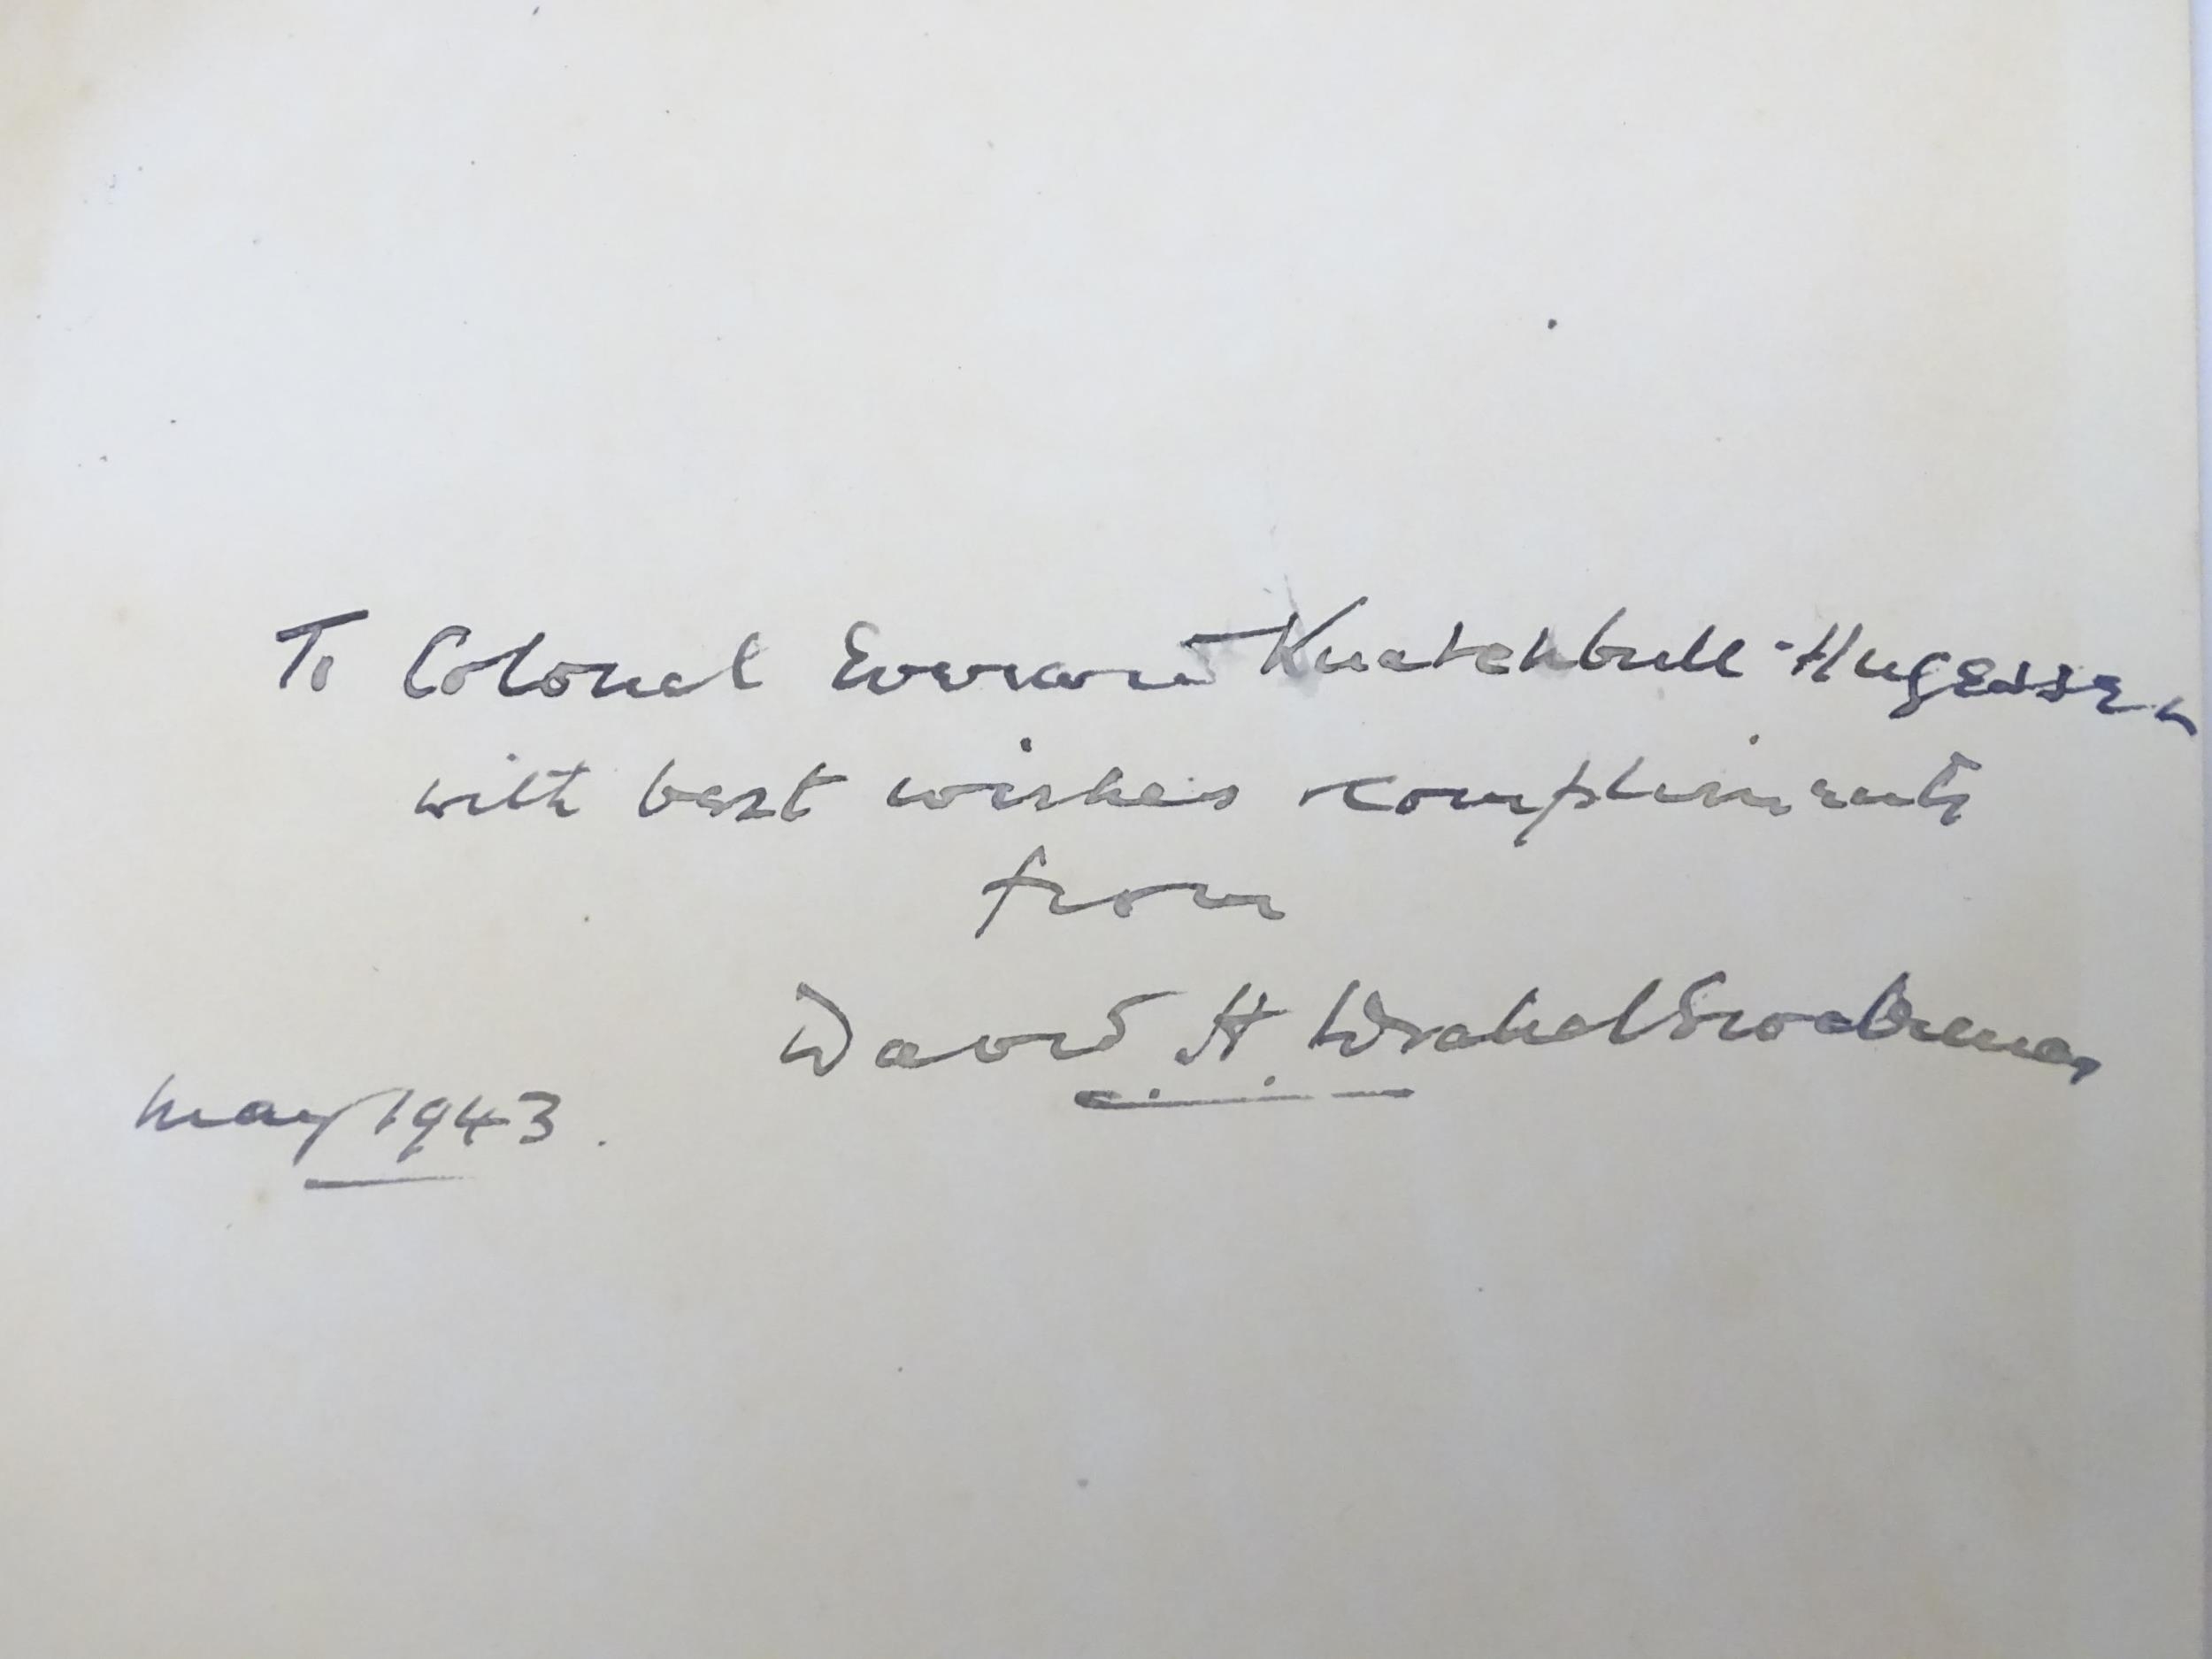 To Colonel Everard Knatchbull-Hugessen
with best wishes & compliments
from
David H
May 1943.